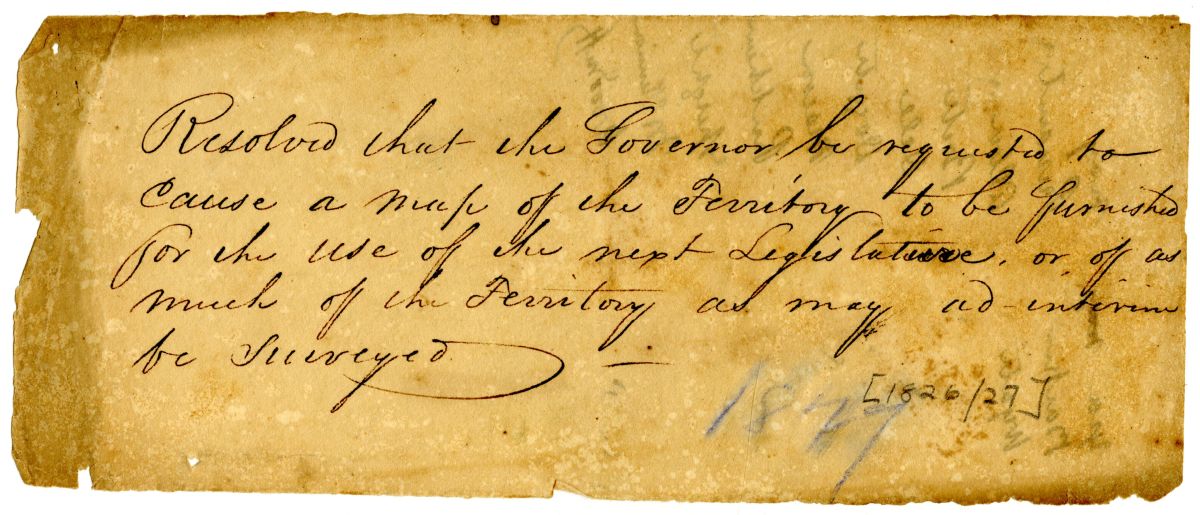 Resolved that the Governor be requested to
cause a map of the Territory to be furnished
for the use of the next Legislature, or of as
much of the Territory as may ad-interim
be surveyed. —
[1826/27]
1827